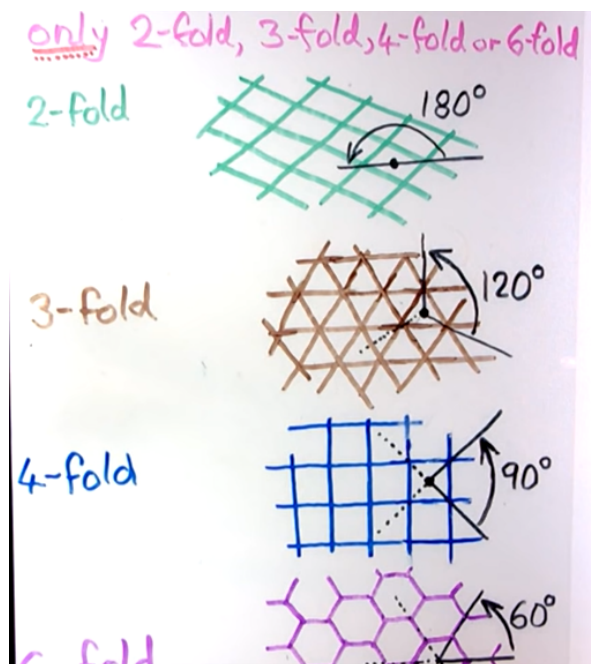 only 2-fold, 3-fold, 4-fold or 6-fold
2-fold
180°
3-fold
120°
4-fold
90°
60°
6-fold